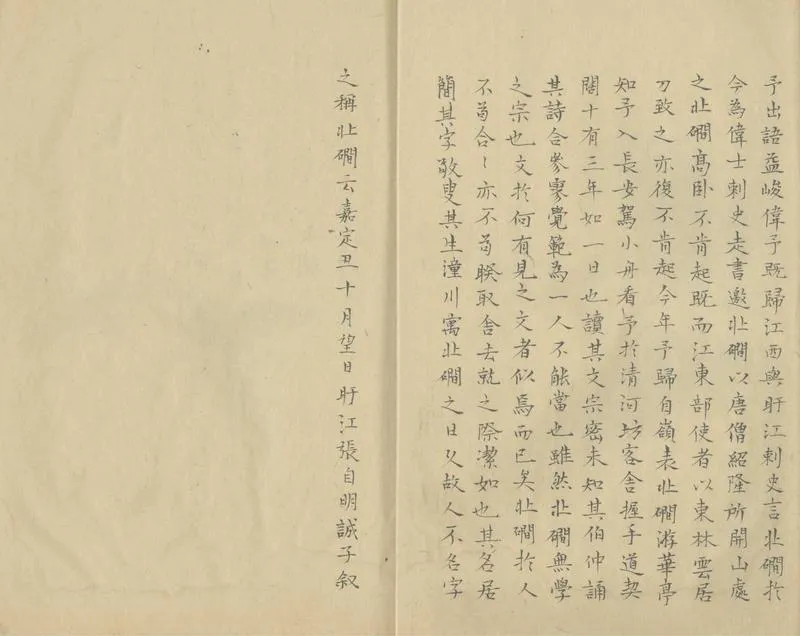 予出語益峻偉予既歸江西與盱江刺史言北磵於
今為偉士刺史走書邀北磵以唐僧紹隆所開山處
之北磵高卧不肯起既而江東部使者以東林雲居
力致之亦復不肯起今年予歸自嶺表北磵游華亭
知予入長安駕小舟看予於清河坊客舍握手道契
闊十有三年如一日也讀其文宗密未知其伯仲誦
其詩合參寥覺範為一人不能當也雖然北磵無學
之宗也文於何有見之文者似焉而已矣北磵於人
不苟合〻亦不苟睽取舍去就之際潔如也其名居
簡其字敬叟其生潼川寓北磵之日久故人不名字
之稱北磵云嘉定丑十月望日盱江張自明誠子叙